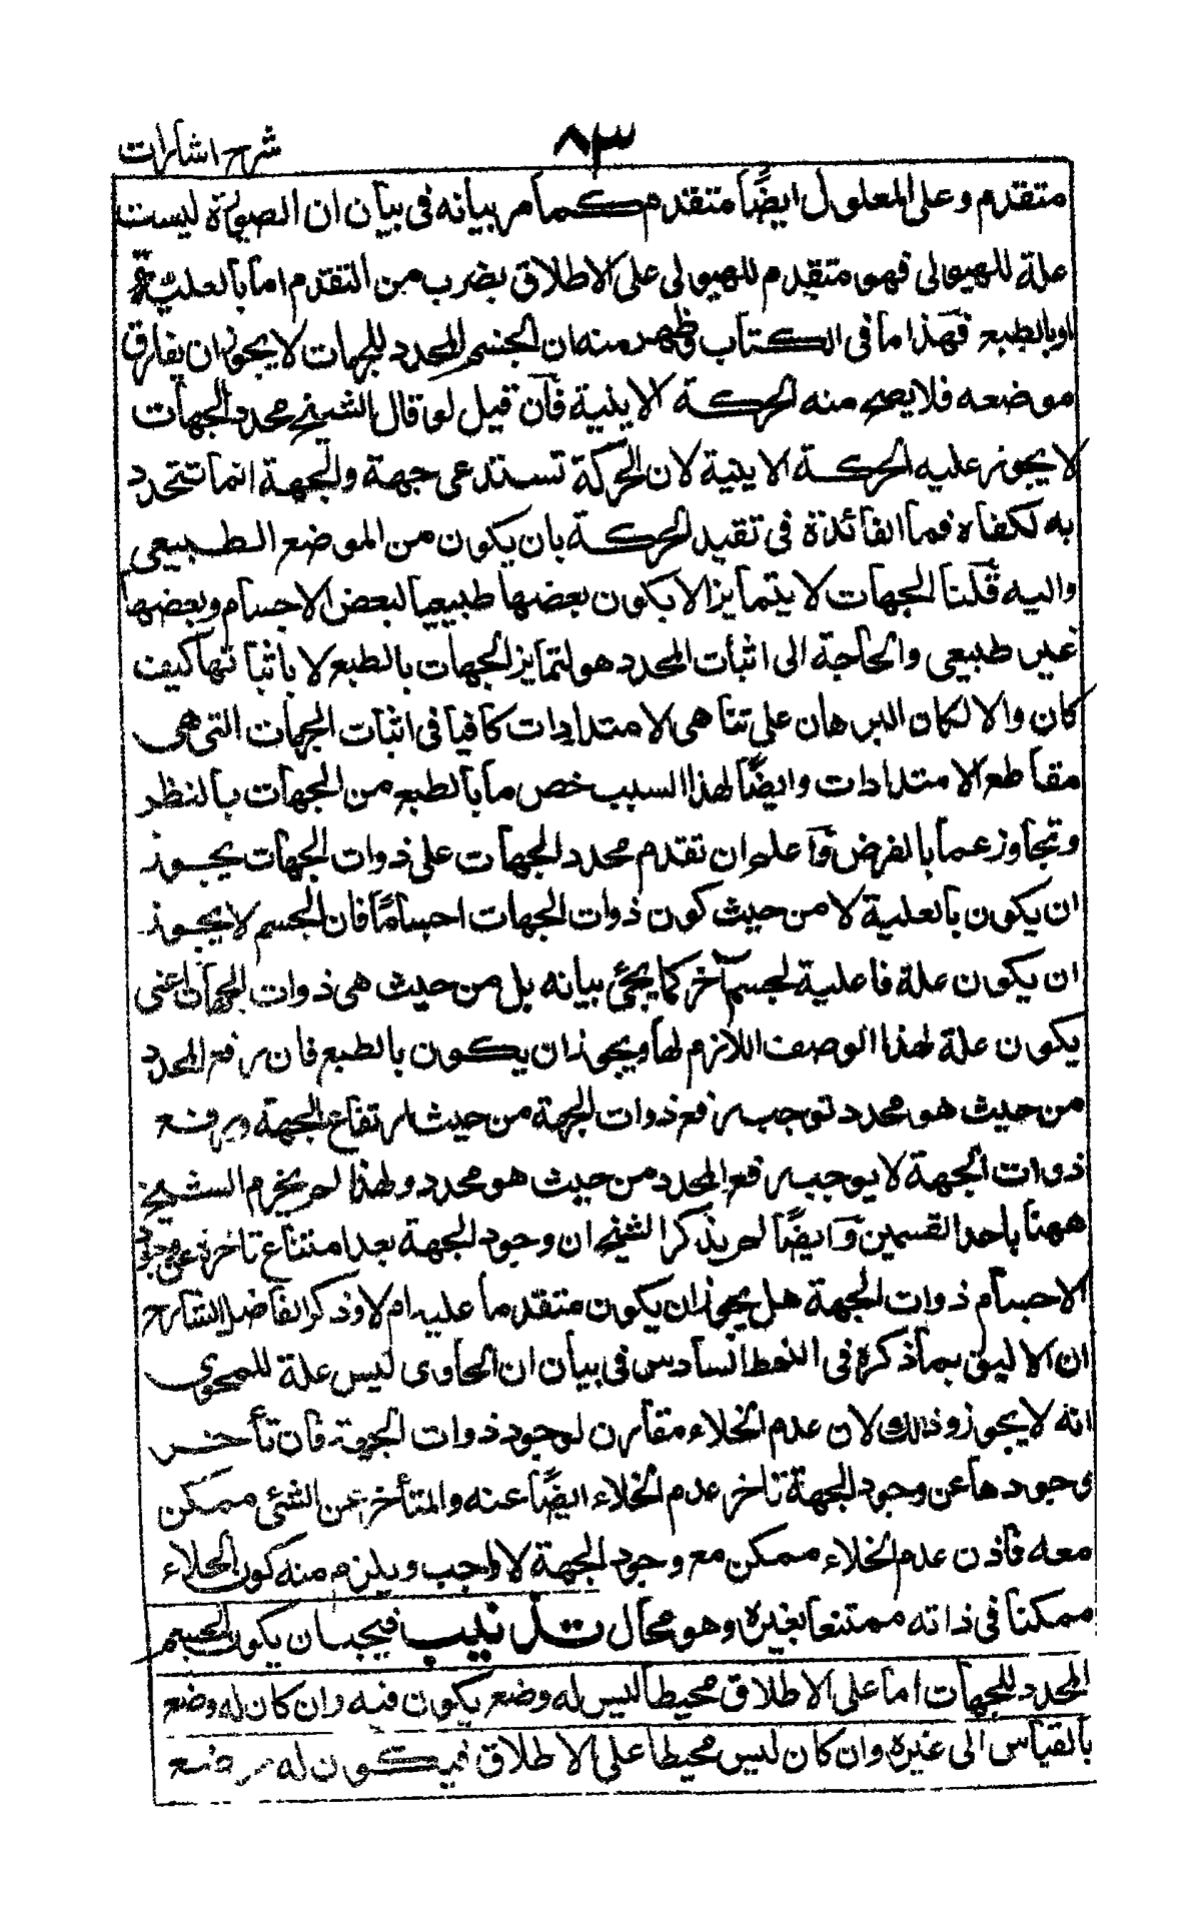 ٨٣
شرح اشارات
متقدم وعلى المعلول ايضًا متقدم كما مر بيانه فى بيان ان الصورة ليست
علة للهيولى فهو متقدم للهيولى على الاطلاق بضرب من التقدم اما بالعلية
او بالطبع فهذا ما فى الكتاب وظهر منه ان الجسم المحدد للجهات لا يجوز ان يفارق
موضعه فلا يصح منه الحركة الاينية فآن قيل لو قال الشيخ محدد الجهات
لا يجوز عليه الحركة الاينية لان الحركة تستدعى جهة والجهة انما تتحدد
به لكفاه فما الفائدة فى تقييد الحركة بان يكون من الموضع الطبيعى
واليه قلنا الجهات لا يتمايز الا بكون بعضها طبيعيا لبعض الاجسام وبعضها
غير طبيعى والحاجة الى اثبات المحدد هو لتمايز الجهات بالطبع لا باثباتها كيف
كان والا لكان البرهان على تناهى الامتدادات كافيا فى اثبات الجهات التى هى
مقاطع الامتدادات وايضًا لهذا السبب خص ما بالطبع من الجهات بالنظر
وتجاوز عما بالفرض وآعلم ان تقدم محدد الجهات على ذوات الجهات يجوز
ان يكون بالعلية لا من حيث كون ذوات الجهات اجسامًا فان الجسم لا يجوز
ان يكون علة فاعلية لجسم آخر كما يجئ بيانه بل من حيث هى ذوات الجهات اعنى
يكون علة لهذا الوصف اللازم لها ويجوز ان يكون بالطبع فان رفع المحدد
من حيث هو محدد توجب رفع ذوات الجهة من حيث ارتفاع الجهة ورفع
ذوات الجهة لا يوجب رفع المحدد من حيث هو محدد ولهذا لم يجزم الشيخ
ههنا باحد القسمين وآيضًا لم يذكر الشيخ ان وجود الجهة بعد امتناع تاخره عن وجود
الاجسام ذوات الجهة هل يجوز ان يكون متقدما عليه ام لا وذكر الفاضل الشارح
ان الاليق بما ذكره فى النمط السادس فى بيان ان الحاوى ليس علة للمحوى
انه لا يجوز وذلك لان عدم الخلاء مقارن لوجود ذوات الجهة فان تأخر
وجودها عن وجود الجهة تاخر عدم الخلاء ايضًا عنه والمتأخر عن الشئ ممكن
معه فآذن عدم الخلاء ممكن مع وجود الجهة لا واجب ويلزم منه كون الخلاء
ممكنا فى ذاته ممتنعا بغيره وهو محال تذنيب فيجب ان يكون الجسم
المحدد للجهات اما على الاطلاق محيطا ليس له وضع يكون فيه وان كان له وضع
بالقياس الى غيره وان كان ليس محيطا على الاطلاق فيكون له موضع